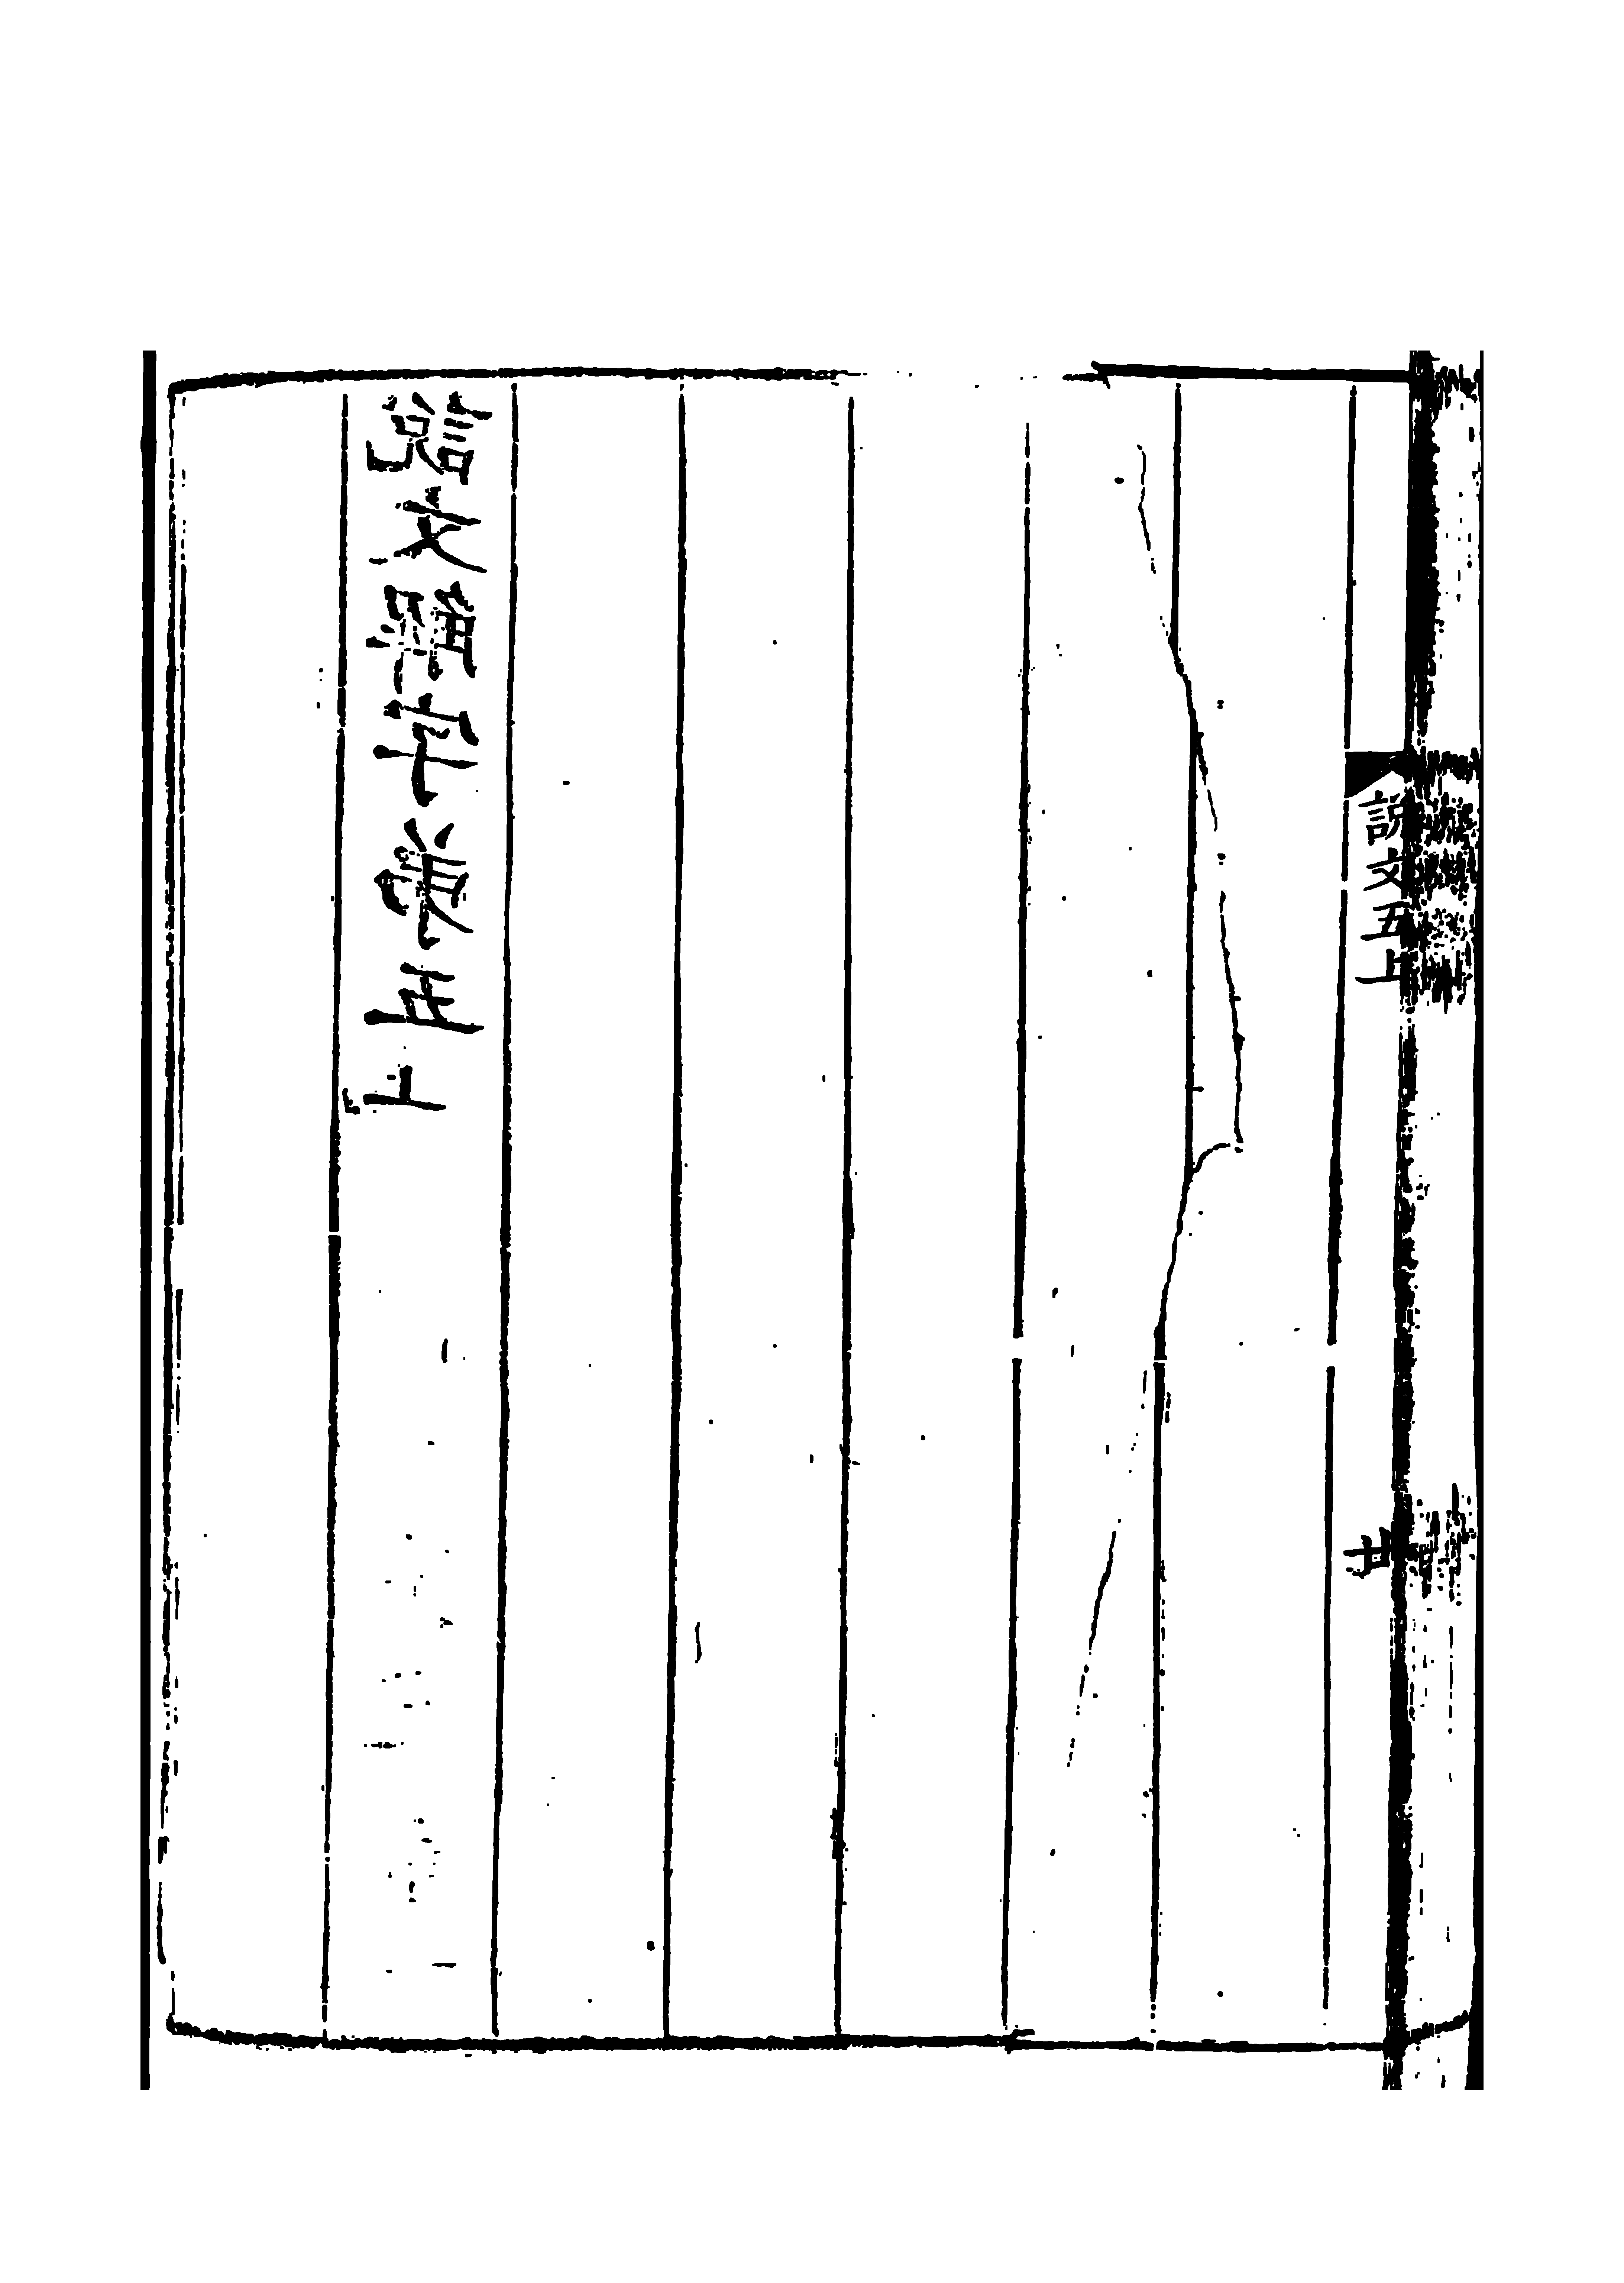 說文五上
廿
說文解字五上